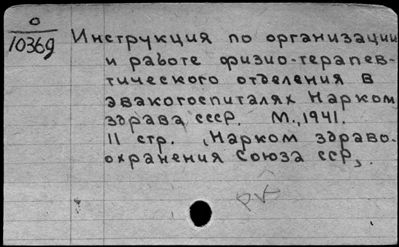 0
10369
Инструкция по организации
и работе физио-терапев-
тического отделения в
эвакогоспиталях Нарком
здрава СССР. М., 1941.
11 стр. (Нарком здраво-
охранения Союза ССР).